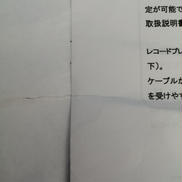 定が可能で
取扱説明書
レコードプレ
下)。
ケーブルが
を受けやす